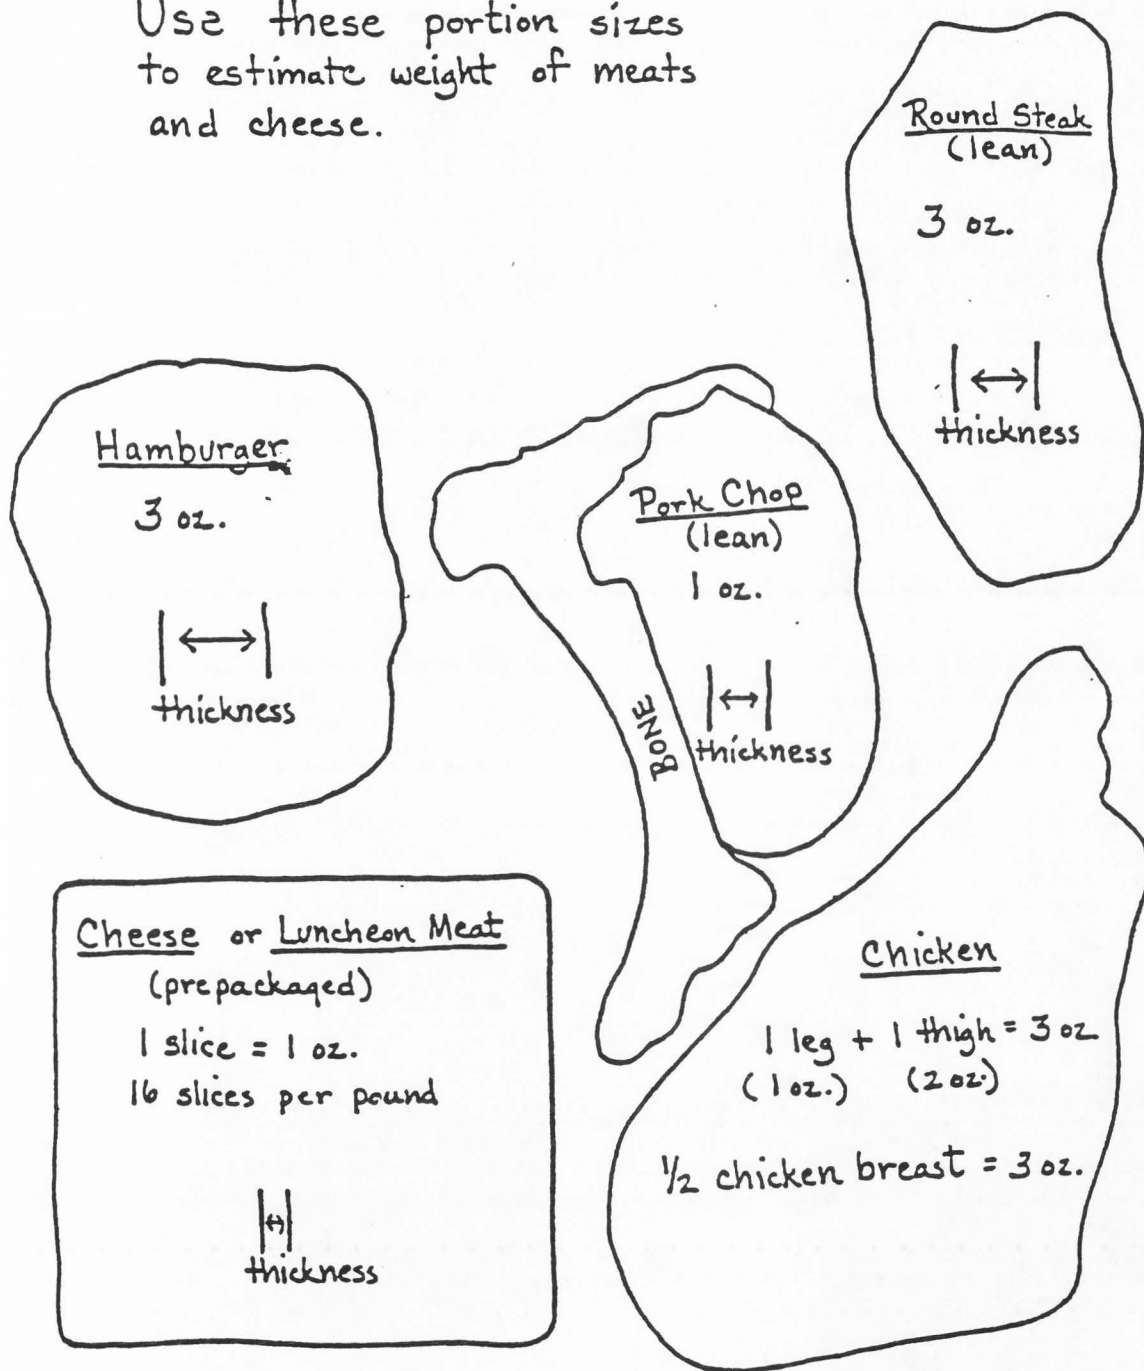 Use these portion sizes
to estimate weight of meats
and cheese.
Round Steak
(lean)
3 oz.
thickness
Hamburger
3 oz.
thickness
Pork Chop
(lean)
1 oz.
thickness
BONE
Cheese or Luncheon Meat
(prepackaged)
1 slice = 1 oz.
16 slices per pound
thickness
Chicken
1 leg + 1 thigh = 3 oz
(1 oz.) (2 oz.)
1/2 chicken breast = 3 oz.